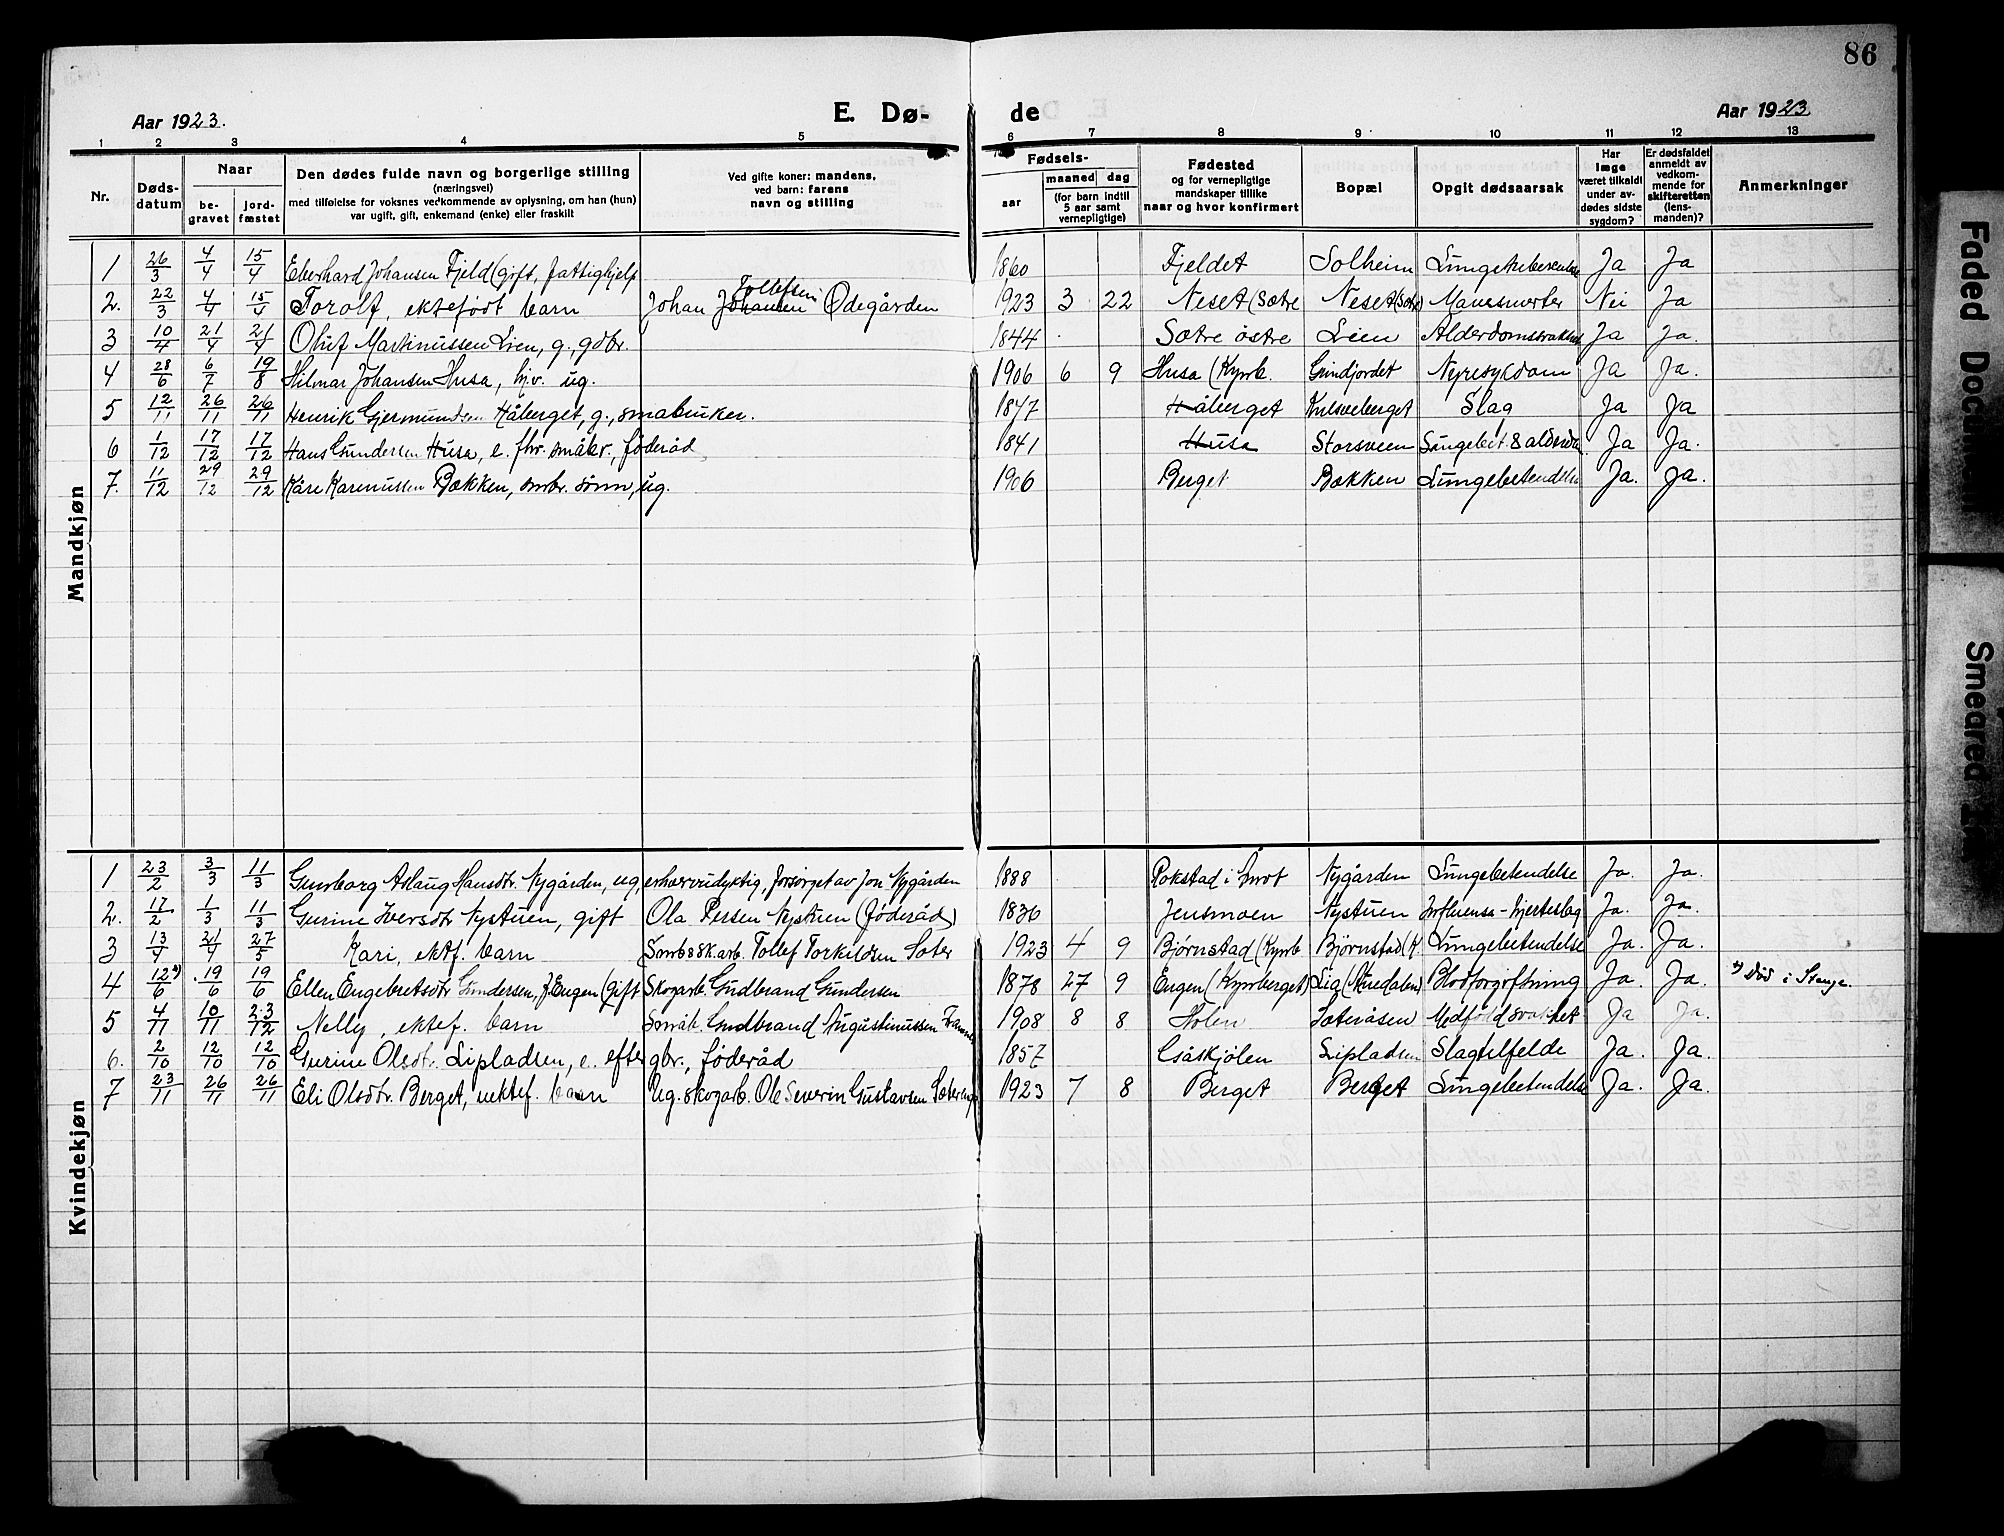 86
Aar 1923. E. Dø- de Aar 1923
1 2 3 4 5 6 7 8 9 10 11 12 13
Nr. Døds-datum Naar be-gravet jord-fæstet Den dødes fulde navn og borgerlige stilling (næringsvei) med tilføielse for voksnes vedkommende av oplysning, om han (hun) var ugift, gift, enkemand (enke) eller fraskilt Ved gifte koner: mandens, ved barn: farens navn og stilling Fødsels- aar maaned dag (for barn indtil 5 aar samt vernepligtige) Fødested og for vernepligtige mandskaper tillike naar og hvor konfirmert Bopæl Opgit dødsaarsak Har læge været tilkaldt under av-dødes sidste sygdom? Er dødsfaldet anmeldt av vedkom-mende for skifteretten (lens-manden)? Anmerkninger
Mandkjøn
1 26/3 4/4 15/4 Eberhard Johansen Fjeld (gift, fattighjelp 1860 Fjeldet Solheim Lungetuberkulose Ja Ja
2. 22/3 4/4 15/4 Toralf, ektefødt barn Johan Johansen Tollefsen Ødegården 1923 3 22 Neset (Sætre Neset (Sætre) Mavesmerter Nei Ja
3 10/4 21/4 21/4 Oluf Martinussen Lien, g., gdbr. 1844 Sætre østre Lien Ja Ja.
4 28/6 6/7 19/8 Hilmar Johansen Husa, hjv. ug. 1906 6 9 Husa (Kynb. Gundjordet Nyresykdom Ja Ja.
5 12/11 26/11 26/11 Henrik Gjermundsen Håberget, g., småbruker. 1847 Håberget Kulsveberget Slag Ja Ja
6 1/12 17/12 17/12 Hans Gundersen Husa, e. fhv. småbr., føderåd 1841 Husa Storsveen Ja Ja.
7. 11/12 29/12 29/12 Kåre Karenussen Bækken, smbr. sønn, ug. 1906 Berget Bækken Lungebetendelse Ja. Ja.
Kvindekjøn
1 23/2 3/3 11/3 Gunborg Aslaug Hansdtr. Nygården, ug, erhvervudyktig, forsørget av Jon Nygården 1888 Rokstad i Nygården Lungebetendelse Ja. Ja.
2. 17/2 1/3 11/3 Gurine Iversdtr Nystuen, gift Ola Persen Nystuen (føderåd) 1836 Jensmoen Nystuen Influensa - hjerteslag Ja. Ja.
3 13/4 21/4 27/5 Kari, ektf. barn Smb & sk.arb. Tollef Torkildsen Sæter 1923 4 9 Bjørnstad (Kynb Bjørnstad (K. Lungebetendelse Ja. Ja.
4 12*)/6 19/6 19/6 Ellen Engebretsdtr Gundersen, f. Engen (gift Skogarb. Gudbrand Gundersen 1878 27 9 Engen (Kynberget) Lia Blodforgiftning Ja. Ja. *) Død i Stange.
5 4/11 10/11 23/12 Nelly, ektef. barn Småb. Gudbrand Augustinussen 1908 8 8 Holen Sæteråsen Medfødd svakhet Ja Ja.
6. 2/10 12/10 12/10 Gurine Olsdtr. Lipladsen, e. efter gbr., føderåd 1857 Lipladsen Slagtilfelde Ja. Ja.
7 23/11 26/11 26/11 Eli Olsdtr. Berget, uektef. barn Ug. skogarb. Ole Severin Gustavsen 1923 7 8 Berget Berget Lungebetendelse Ja. Ja.
Faded Document
Smeared